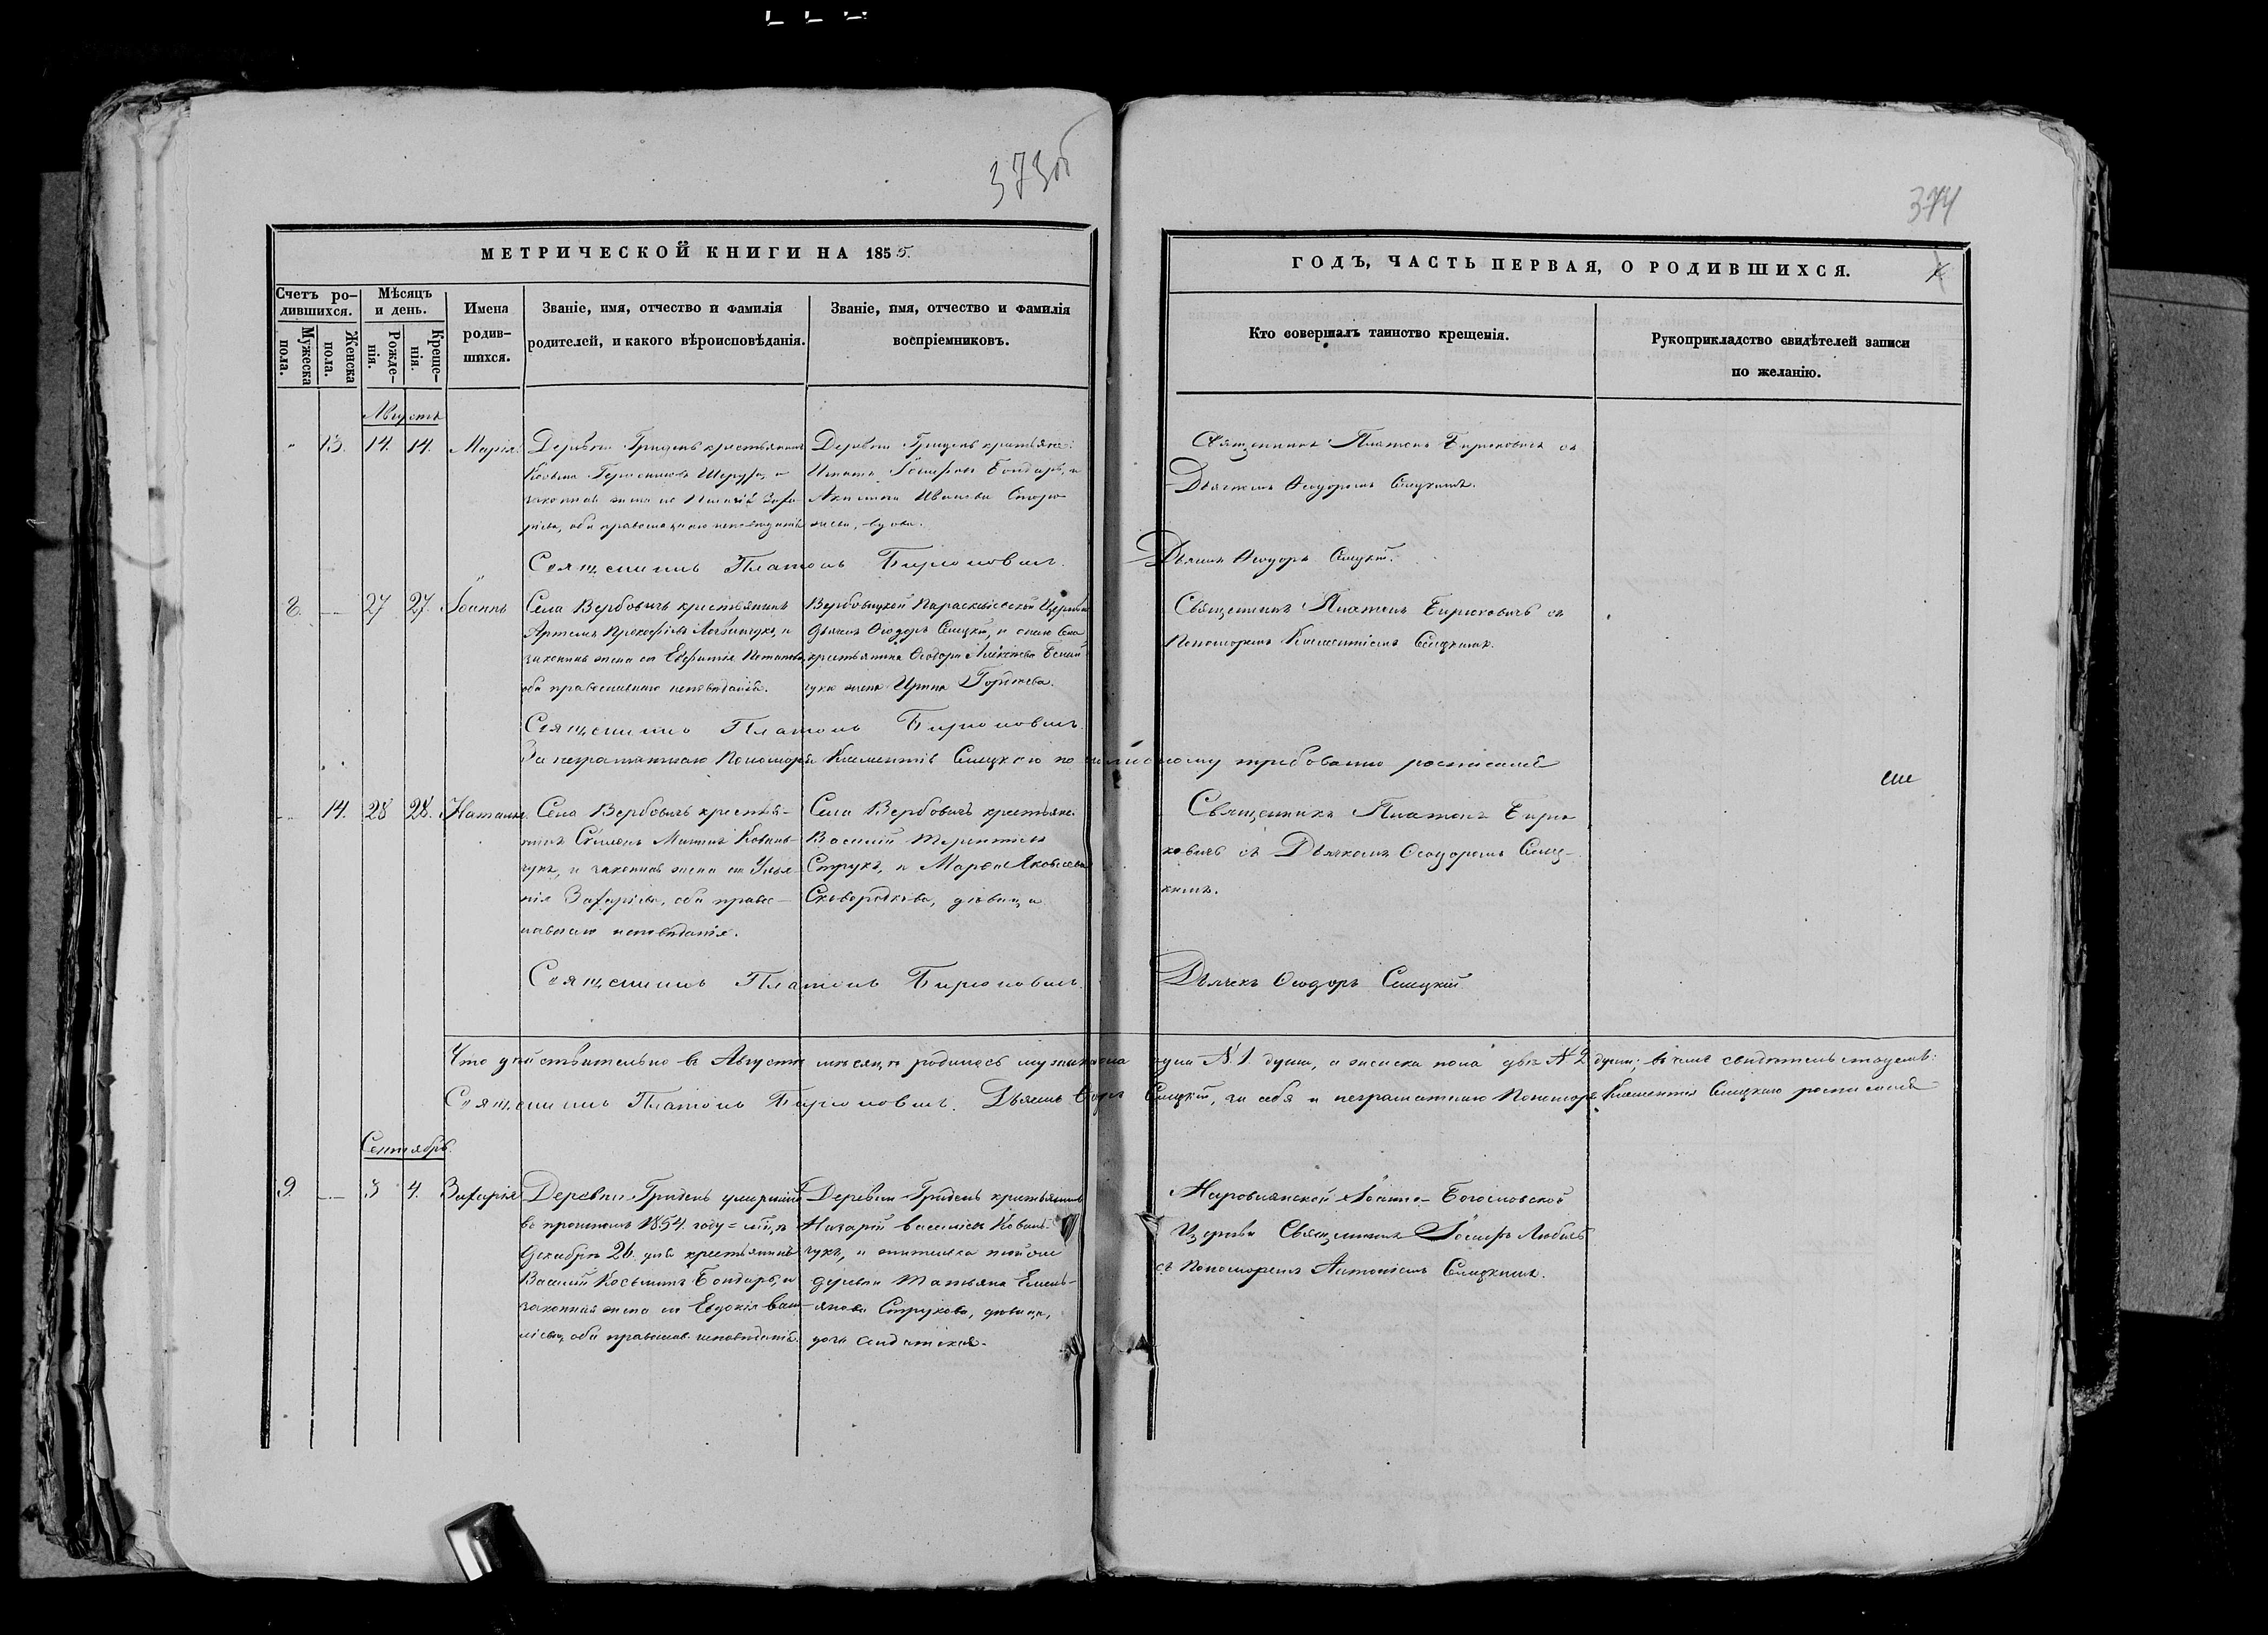 373об
374
МЕТРИЧЕСКОЙ КНИГИ НА 1855.
Счетъ ро-
дившихся.
Мужеска
пола.
Женска
пола.
Мѣсяцъ
и день.
Рожде-
нія.
Креще-
нія.
Имена
родив-
шихся.
Званіе, имя, отчество и фамилія
родителей, и какого вѣроисповѣданія.
Званіе, имя, отчество и фамилія
воспріемниковъ.
ГОДЪ, ЧАСТЬ ПЕРВАЯ, О РОДИВШИХСЯ.
Кто совершалъ таинство крещенія.
Рукоприкладство свидѣтелей записи
по желанію.
Августъ
13. 14. 14. Марія
Деревни крестьянинъ
Косьма и
законная жена его Заха-
ріева, оба православнаго исповѣданія
Деревни крестьяне:
Іосифовъ Бондарь, и
Акилина Иванова
вдова.
Священникъ Платонъ Бирюковичь съ
Дьячкомъ Ѳеодоромъ Слуцкимъ.
Священникъ Платонъ Бирюковичь
Дьячекъ Ѳеодоръ Слуцкій.
8. — 27 27. Іоаннъ
Села Вербовичъ крестьянинъ
Артемъ Прокофіевъ и
законная жена его Евфимія
оба православнаго исповѣданія.
Вербовицкой Параскевіевской Церкви
дьячекъ Ѳеодоръ Слуцкій, и села
крестьянина Ѳеодора
жена Ирина Гордѣева.
Священникъ Платонъ Бирюковичь съ
Пономаремъ Климентіемъ Слуцкимъ.
Священникъ Платонъ Бирюковичь
За неграматнаго Пономаря Климентія Слуцкаго по личному требованію росписался
14. 28 28. Наталія.
Села Вербовичъ крестья-
нинъ Семенъ Ковань-
чукъ, и законная жена его Улья-
нія Захаріева, оба правос-
лавнаго исповѣданія.
Села Вербовичъ крестьяне:
Василій Терентіевъ
Струкъ, и Марѳа Яковлева
Сковородкова, дѣвица
Священникъ Платонъ Бирю-
ковичь съ Дьячкомъ Ѳеодоромъ Слуц-
кимъ.
Священникъ Платонъ Бирюковичь
Дьячекъ Ѳеодоръ Слуцкій
Что дѣйствительно въ Августѣ мѣсяцѣ родилось мужеска пола одна №1. душа, а женска пола двѣ №2 души; въ чемъ свидѣтельствуемъ:
Священникъ Платонъ Бирюковичь. Дьячекъ Ѳеодоръ Слуцкій, за себя и неграматнаго Пономаря Климентія Слуцкаго росписался
Сентябрь.
9. — 3 4. Захарія
Деревни Гридень умершій
въ прошломъ 1854. году
Декабря 26. дня крестьянинъ
Василій Косьминъ Бондарь, и
законная жена его Евдокія Васи-
ліева, оба православ. исповѣданія.
Деревни Гридень крестьянинъ
Назарій Васильевъ Ковань-
чукъ, и жителька той же
деревни Татьяна Емель-
янова Струкова, дѣвица,
дочь солдатская.
Наровлянской Іоанно-Богословской
Церкви Священникъ Іосифъ Любичь
съ Пономаремъ Антоніемъ Слуцкимъ.